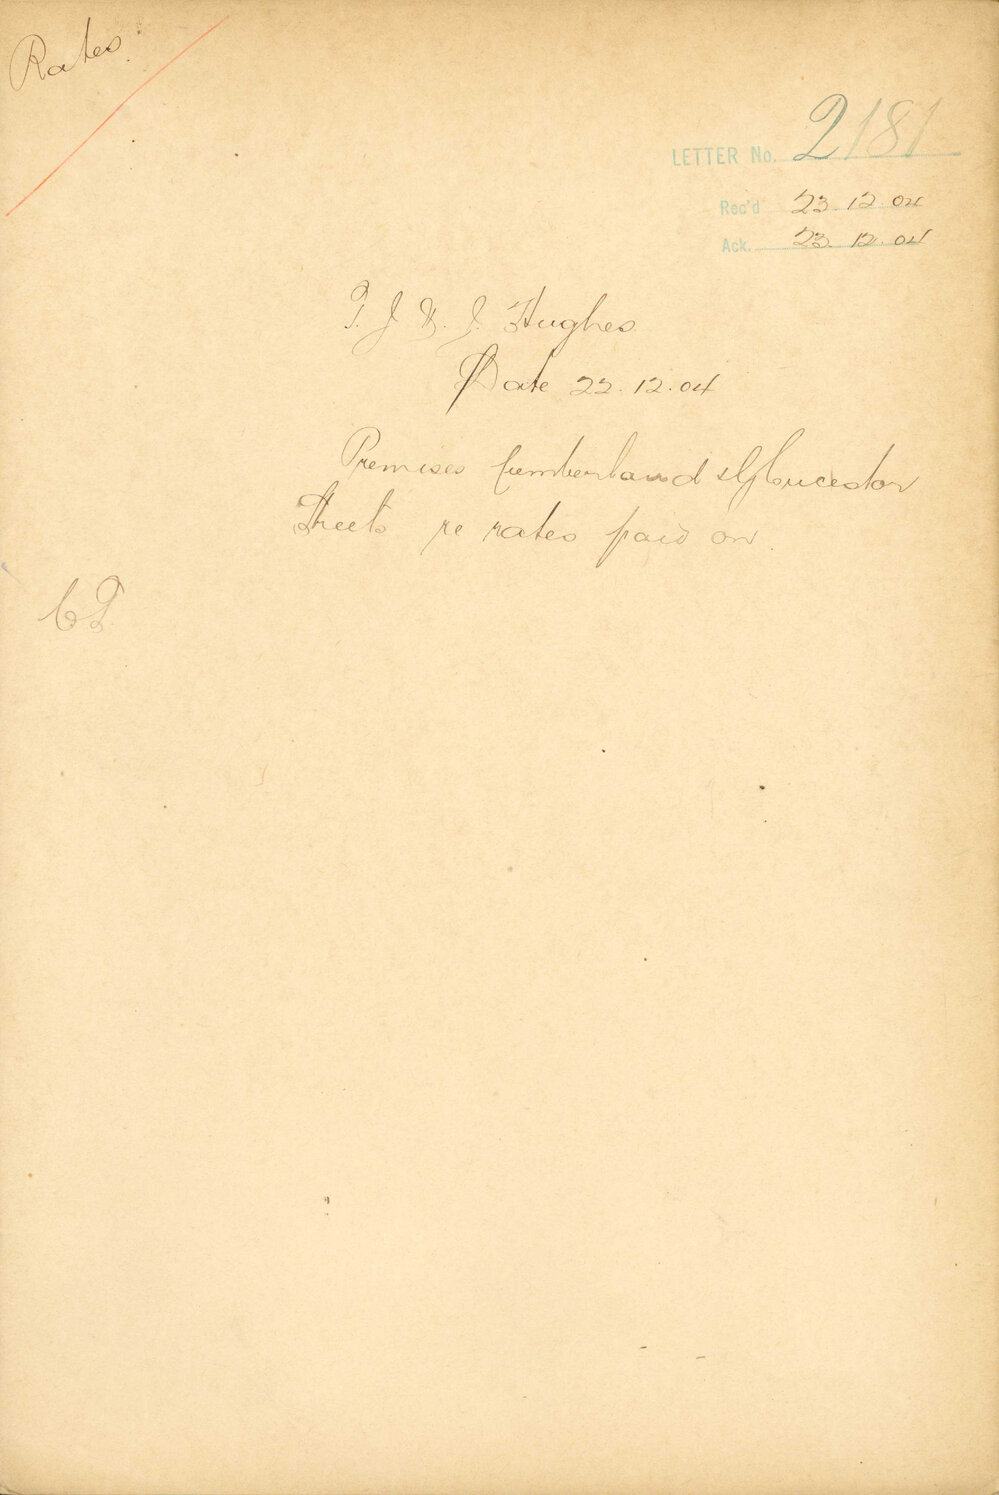 Rates.
LETTER No. 2181
Rec'd 23.12.04
Ack. 23.12.04
T. J & J. Hughes
Date 22.12.04
Premises Cumberland & Gloucester
Streets re rates paid on.